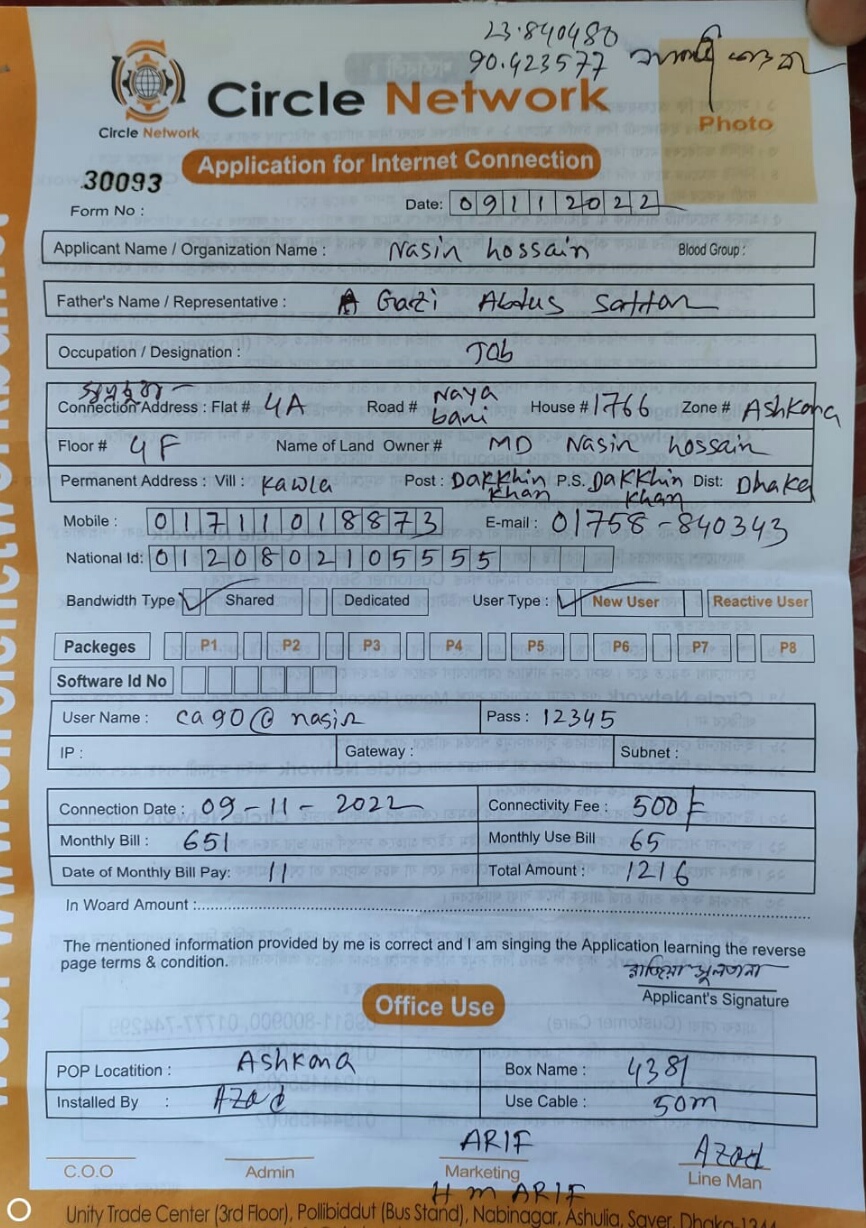 23.840480
90.423577
Circle Network
Circle Network
Photo
Application for Internet Connection
30093
Form No :
Date: 09112022
Applicant Name / Organization Name : Nasin hossain Blood Group :
Father's Name / Representative : Gazi Abdus Sattar
Occupation / Designation : Job
Connection Address : Flat # 4A Road # Naya bari House # 1766 Zone # Ashkona
Floor # 4F Name of Land Owner # MD Nasin hossain
Permanent Address : Vill : Kawla Post : Dakkhin khan P.S. Dakkhin khan Dist: Dhaka
Mobile : 01711018873 E-mail : 01758-840343
National Id: 0120802105555
Bandwidth Type Shared Dedicated User Type : New User Reactive User
Packeges P1 P2 P3 P4 P5 P6 P7 P8
Software Id No
User Name : ca90@nasin Pass : 12345
IP : Gateway : Subnet :
Connection Date : 09-11-2022 Connectivity Fee : 500/-
Monthly Bill : 651 Monthly Use Bill 65
Date of Monthly Bill Pay: 11 Total Amount : 1216
In Woard Amount :
The mentioned information provided by me is correct and I am singing the Application learning the reverse
page terms & condition.
রাজিয়া সুলতানা
Applicant's Signature
Office Use
POP Locatition : Ashkona Box Name : 4381
Installed By : Azad Use Cable : 50m
ARIF Azad
C.O.O Admin Marketing Line Man
H m ARIF
Unity Trade Center (3rd Floor), Pollibiddut (Bus Stand), Nabinagar, Ashulia, Saver, Dhaka 1344